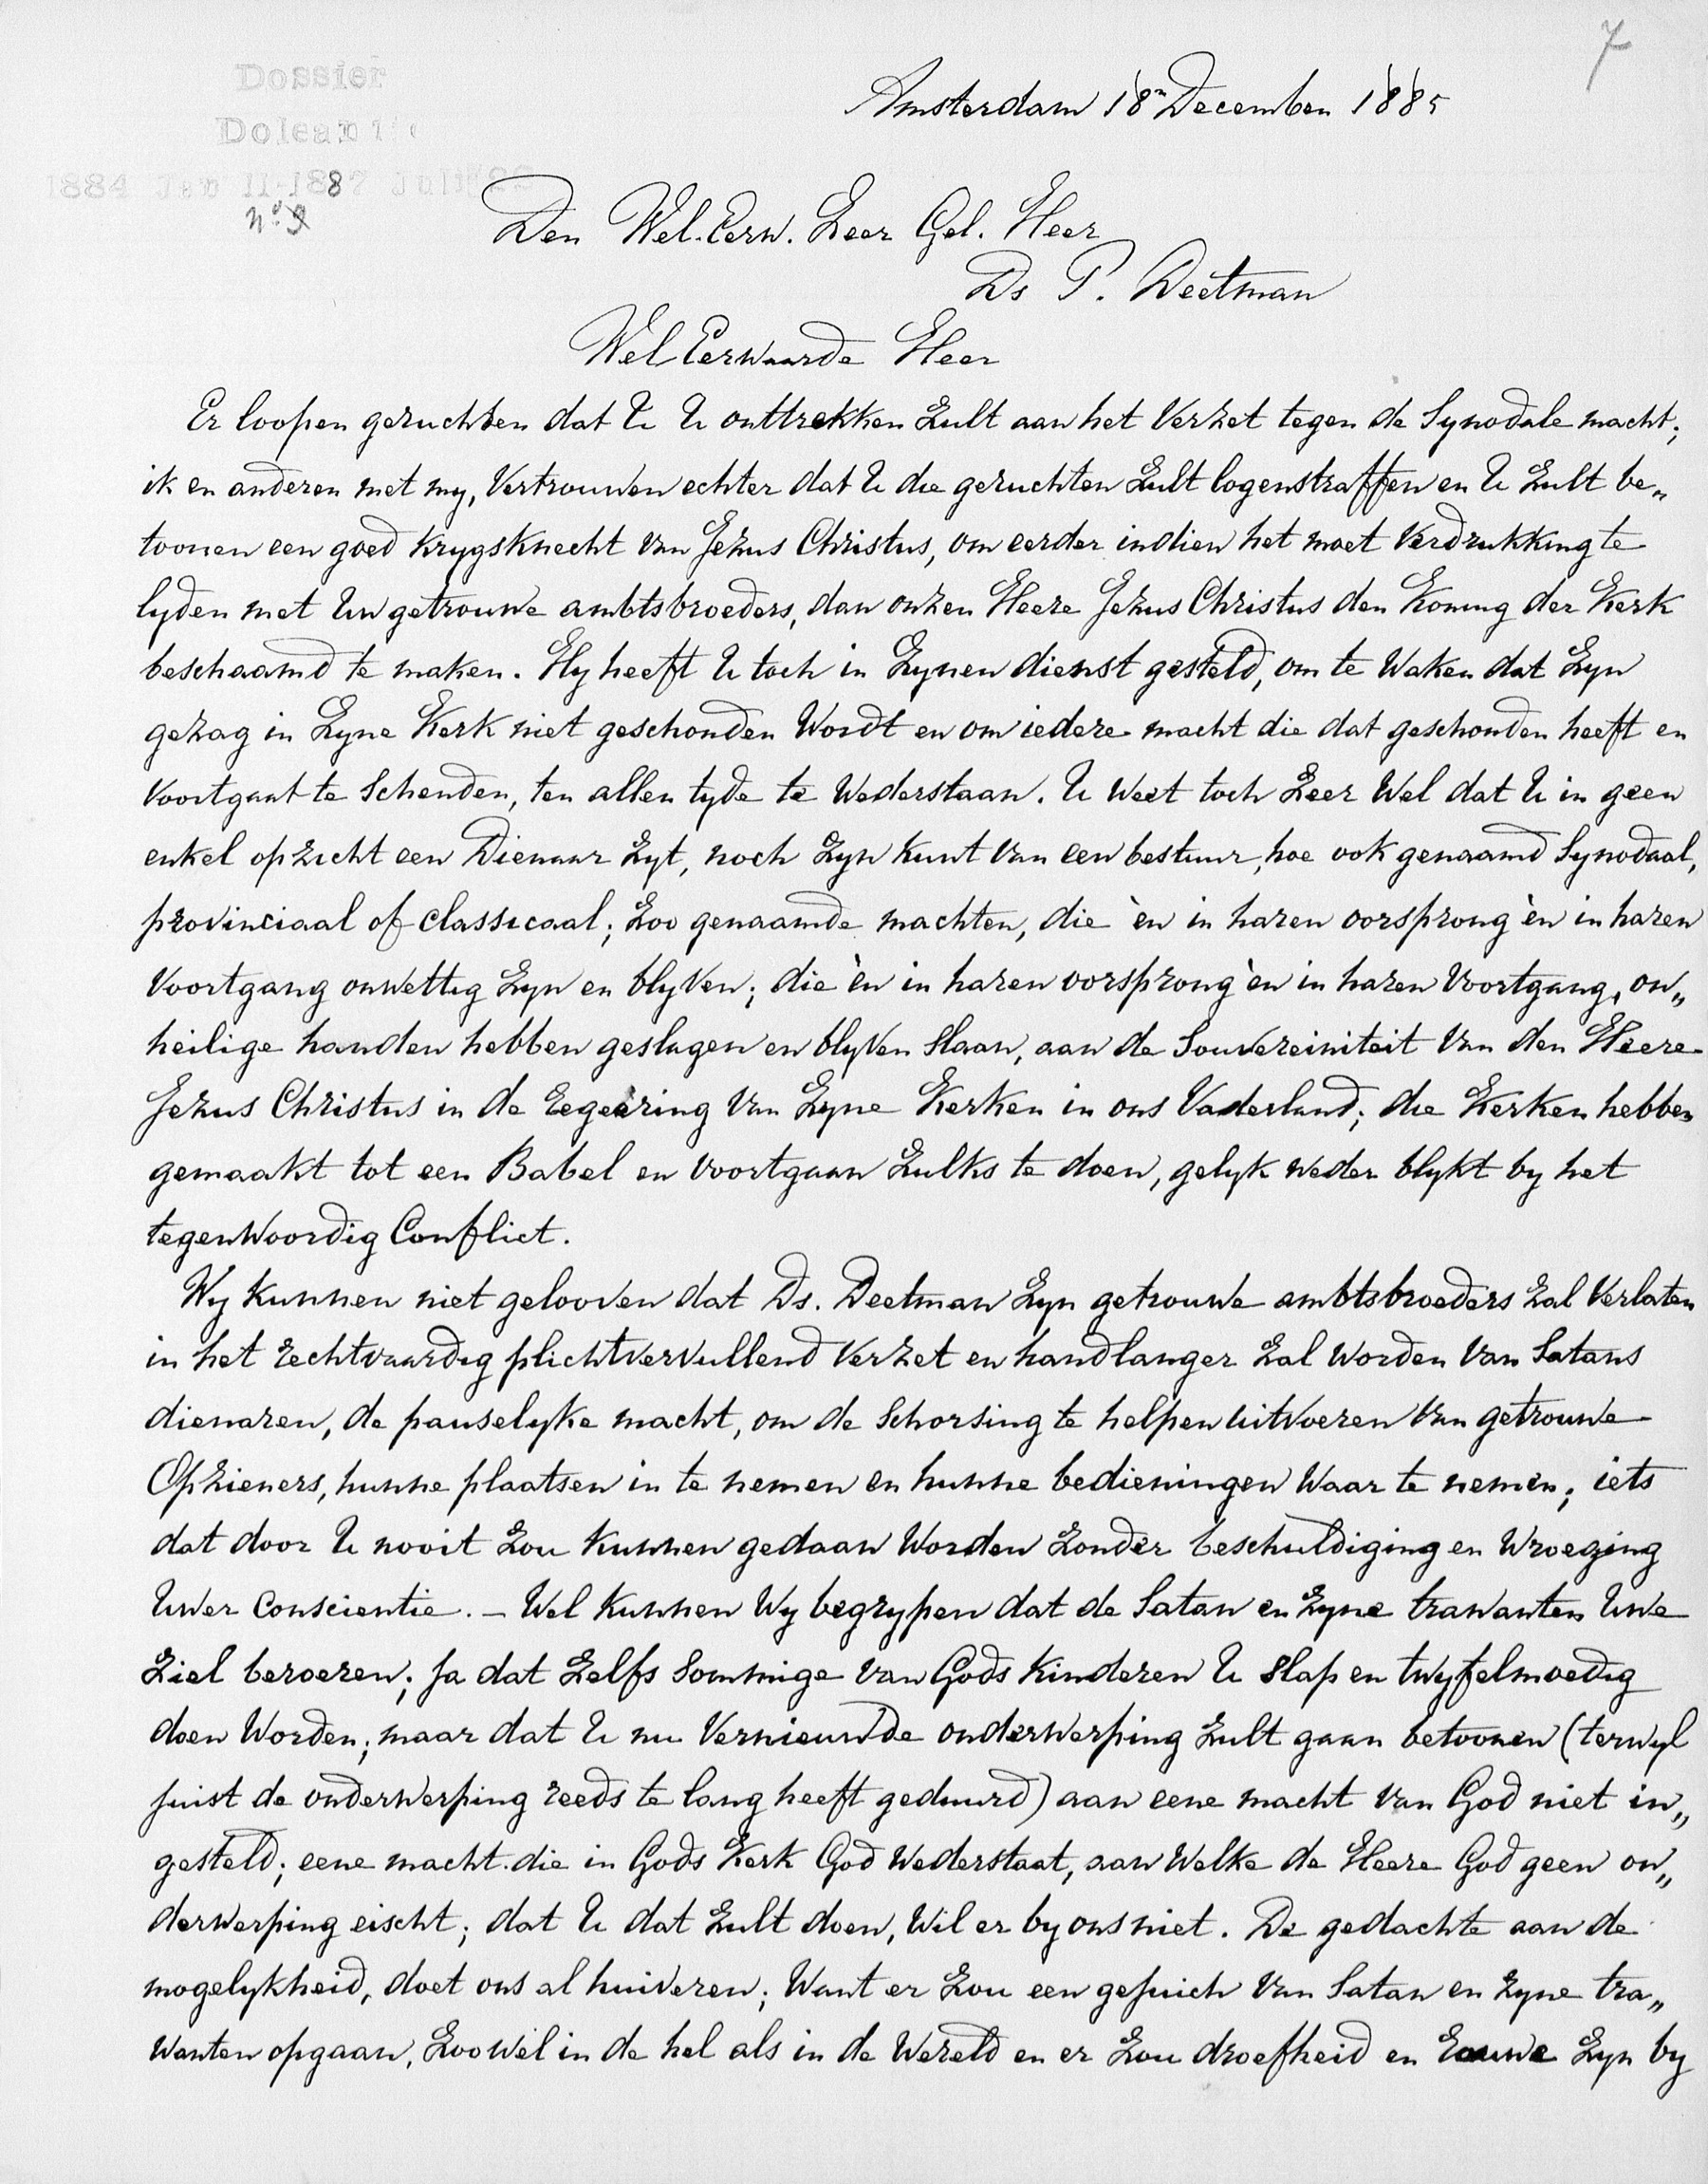 7
Dossier
Doleantie
1884 Jan 11-1887 Juli
No. 9
Amsterdam 18n December 1885
Den Wel. Eerw. Zeer Gel. Heer
Ds P. Deetman
Wel Eerwaarde Heer
Er loopen geruchten dat U U onttrekken zult aan het Verzet tegen de Synodale macht;
ik en anderen met my, Vertrouwen echter dat U die geruchten zult logenstraffen en U zult be„
toonen een goed Krygsknecht van Jezus Christus, om eerder indien het moet Verdrukking te
lyden met Uw getrouwe ambtsbroeders, dan onzen Heere Jezus Christus den Koning der Kerk
beschaamd te maken. Hy heeft U toch in Zynen dienst gesteld, om te Waken dat Zyn
gezag in Zyne Kerk niet geschonden Wordt en om iedere macht die dat geschonden heeft en
Voortgaat te Schenden, ten allen tyde te Wederstaan. U Weet toch Zeer Wel dat U in geen
enkel opzicht een Dienaar Zyt, noch Zyn kunt Van een bestuur, hoe ook genaamd Synodaal,
provinciaal of classicaal; Zoo genaamde machten, die èn in haren oorsprong èn in haren
Voortgang onwettig Zyn en blyven; die èn in haren oorsprong èn in haren Voortgang, on„
heilige handen hebben geslagen en blyven Slaan, aan de Souvereiniteit Van den Heere
Jezus Christus in de Regeering Van Zyne Kerken in ons Vaderland; die Kerken hebben
gemaakt tot een Babel en voortgaan Zulks te doen, gelyk weder blykt by het
tegenwoordig Conflict.
Wy Kunnen niet gelooven dat Ds. Deetman Zyn getrouwe ambtsbroeders Zal Verlaten
in het rechtvaardig plichtvervullend Verzet en handlanger Zal Worden Van Satans
dienaren, de pauselyke macht, om de Schorsing te helpen uitvoeren Van getrouwe
Opzieners, hunne plaatsen in te nemen en hunne bedieningen Waar te nemen; iets
dat door U nooit Zou Kunnen gedaan Worden Zonder beschuldiging en Wroeging
Uwer Conscientie. – Wel Kunnen Wy begrypen dat de Satan en Zyne trawanten Uwe
Ziel beroeren; Ja dat Zelfs Sommige van Gods Kinderen U Slap en twyfelmoedig
doen Worden; maar dat U nu Vernieuwde onderwerping Zult gaan betoonen (terwyl
juist de onderwerping reeds te lang heeft geduurd) aan eene macht van God niet in„
gesteld; eene macht die in Gods Kerk God Wederstaat, aan Welke de Heere God geen on„
derwerping eischt; dat U dat Zult doen, Wil er by ons niet. De gedachte aan de
mogelykheid, doet ons al huiveren; Want er Zou een gejuich Van Satan en Zyne tra„
Wanten opgaan, Zoo wel in de hel als in de Wereld en er Zou droefheid en Rouwe Zyn by